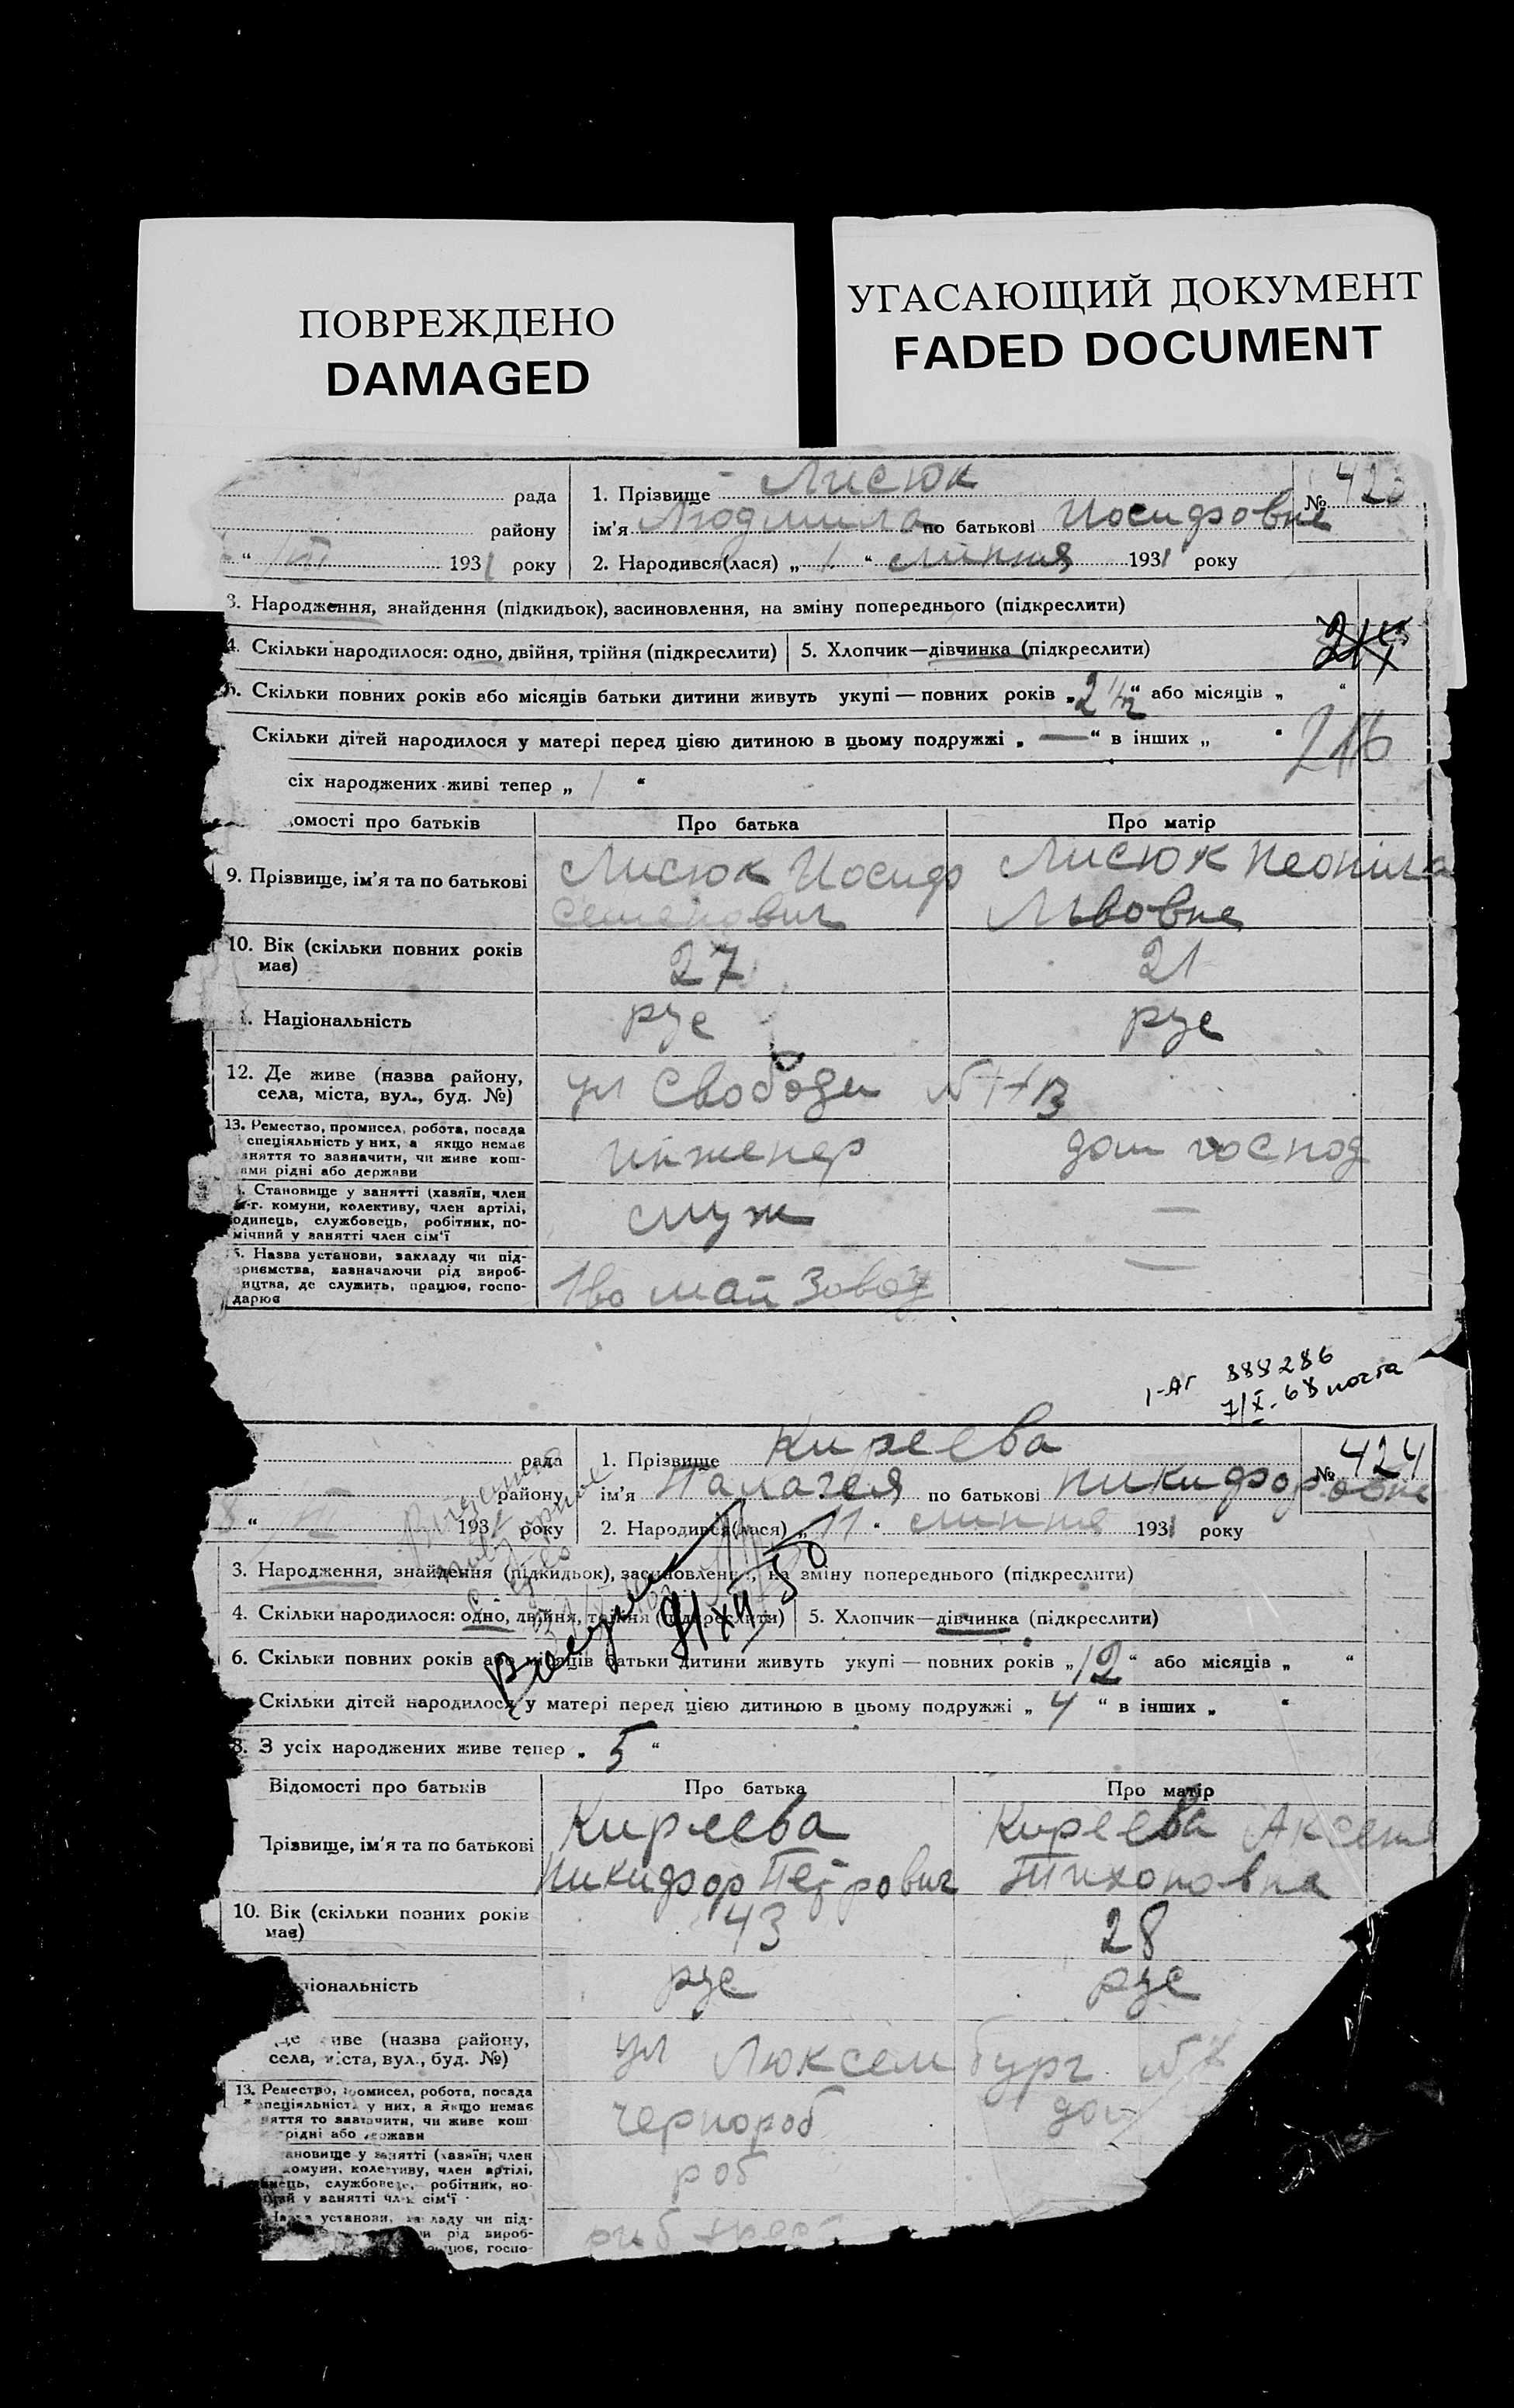 ПОВРЕЖДЕНО
DAMAGED
УГАСАЮЩИЙ ДОКУМЕНТ
FADED DOCUMENT
рада
району
" VII 1931 року
1. Прізвище Лисюк
№ 423
ім'я Людмила по батькові Иосифовне
2. Народився(лася) „ 1 " липня 1931 року
3. Народження, знайдення (підкидьок), засиновлення, на зміну попереднього (підкреслити)
4. Скільки народилося: одно, двійня, трійня (підкреслити) 5. Хлопчик—дівчинка (підкреслити)
6. Скільки повних років або місяців батьки дитини живуть укупі — повних років „ 2 ½ " або місяців „ "
Скільки дітей народилося у матері перед цією дитиною в цьому подружжі „ — " в інших „ "
216
сіх народжених живі тепер „ 1 "
омості про батьків Про батька Про матір
9. Прізвище, ім'я та по батькові
Лисюк Иосиф
Семенович
Лисюк Неоніла
Львовне
10. Вік (скільки повних років
має)
27
21
. Національність
рус
рус
12. Де живе (назва району,
села, міста, вул., буд. №)
ул Свободи №
13. Ремество, промисел, робота, посада
спеціяльність у них, а якщо немає
няття то зазначити, чи живе кош-
ами рідні або держави
инженер
дом господ
. Становище у занятті (хазяїн, член
-г. комуни, колективу, член артілі,
одинець, службовець, робітник, по-
мічний у занятті член сім'ї
служ
—
5. Назва установи, закладу чи під-
приємства, зазначаючи рід вироб-
ицтва, де служить, працює, госпо-
дарює
1во май Завод
—
1-АГ 888286
7/X-68 почта
рада
району
8 " VII 1931 року
1. Прізвище Киреева
№ 424
ім'я Палагея по батькові Никифоровне
2. Народився(лася) „ 11 " липня 1931 року
3. Народження, знайдення (підкидьок), засиновлення, на зміну попереднього (підкреслити)
4. Скільки народилося: одно, двійня, трійня (підкреслити) 5. Хлопчик—дівчинка (підкреслити)
6. Скільки повних років або місяців батьки дитини живуть укупі — повних років „ 12 " або місяців „ "
Скільки дітей народилося у матері перед цією дитиною в цьому подружжі „ 4 " в інших „ "
8. З усіх народжених живе тепер „ 5 "
Відомості про батьків Про батька Про матір
Прізвище, ім'я та по батькові
Киреева
Никифор Петрович
Киреева Аксень
Тихоновна
10. Вік (скільки повних років
має)
43
28
ціональність
рус
рус
Де живе (назва району,
села, міста, вул., буд. №)
ул Люксембург №
13. Ремество, промисел, робота, посада
спеціяльність у них, а якщо немає
няття то зазначити, чи живе кош
рідні або держави
чернороб
дом
ановище у занятті (хазяїн, член
комуни, колективу, член артілі,
инець, службовець, робітник, по-
ний у занятті член сім'ї
роб
Назва установи, закладу чи під-
чи рід вироб-
працює, госпо-
риб трест